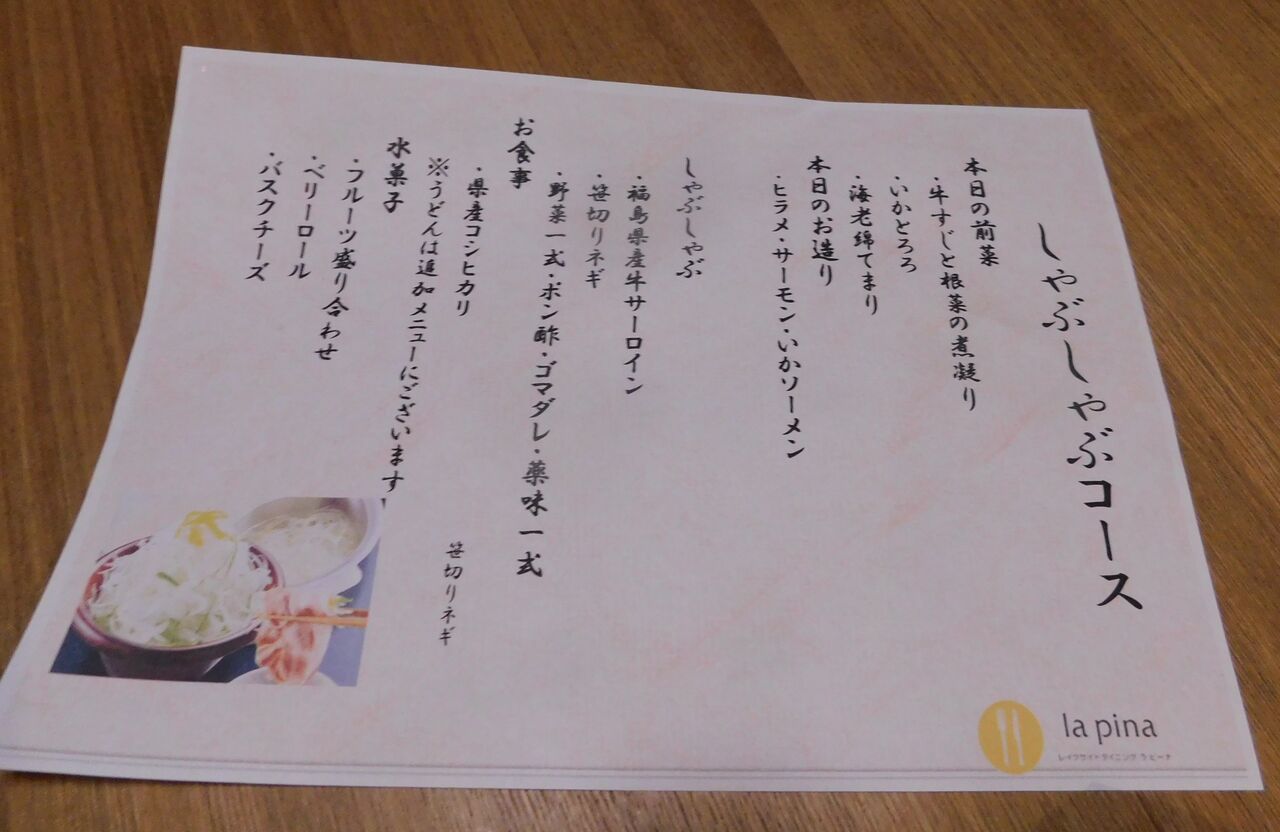 しゃぶしゃぶコース
本日の前菜
・牛すじと根菜の煮凝り
・いかとろろ
・海老綿てまり
本日のお造り
・ヒラメ・サーモン・いかソーメン
しゃぶしゃぶ
・福島県産牛サーロイン
・笹切りネギ
・野菜一式・ポン酢・ゴマダレ・薬味一式
お食事
・県産コシヒカリ
※うどんは追加メニューにございます
水菓子
・フルーツ盛り合わせ
・ベリーロール
・バスクチーズ
笹切りネギ
la pina
レイクサイドダイニング ラピーナ